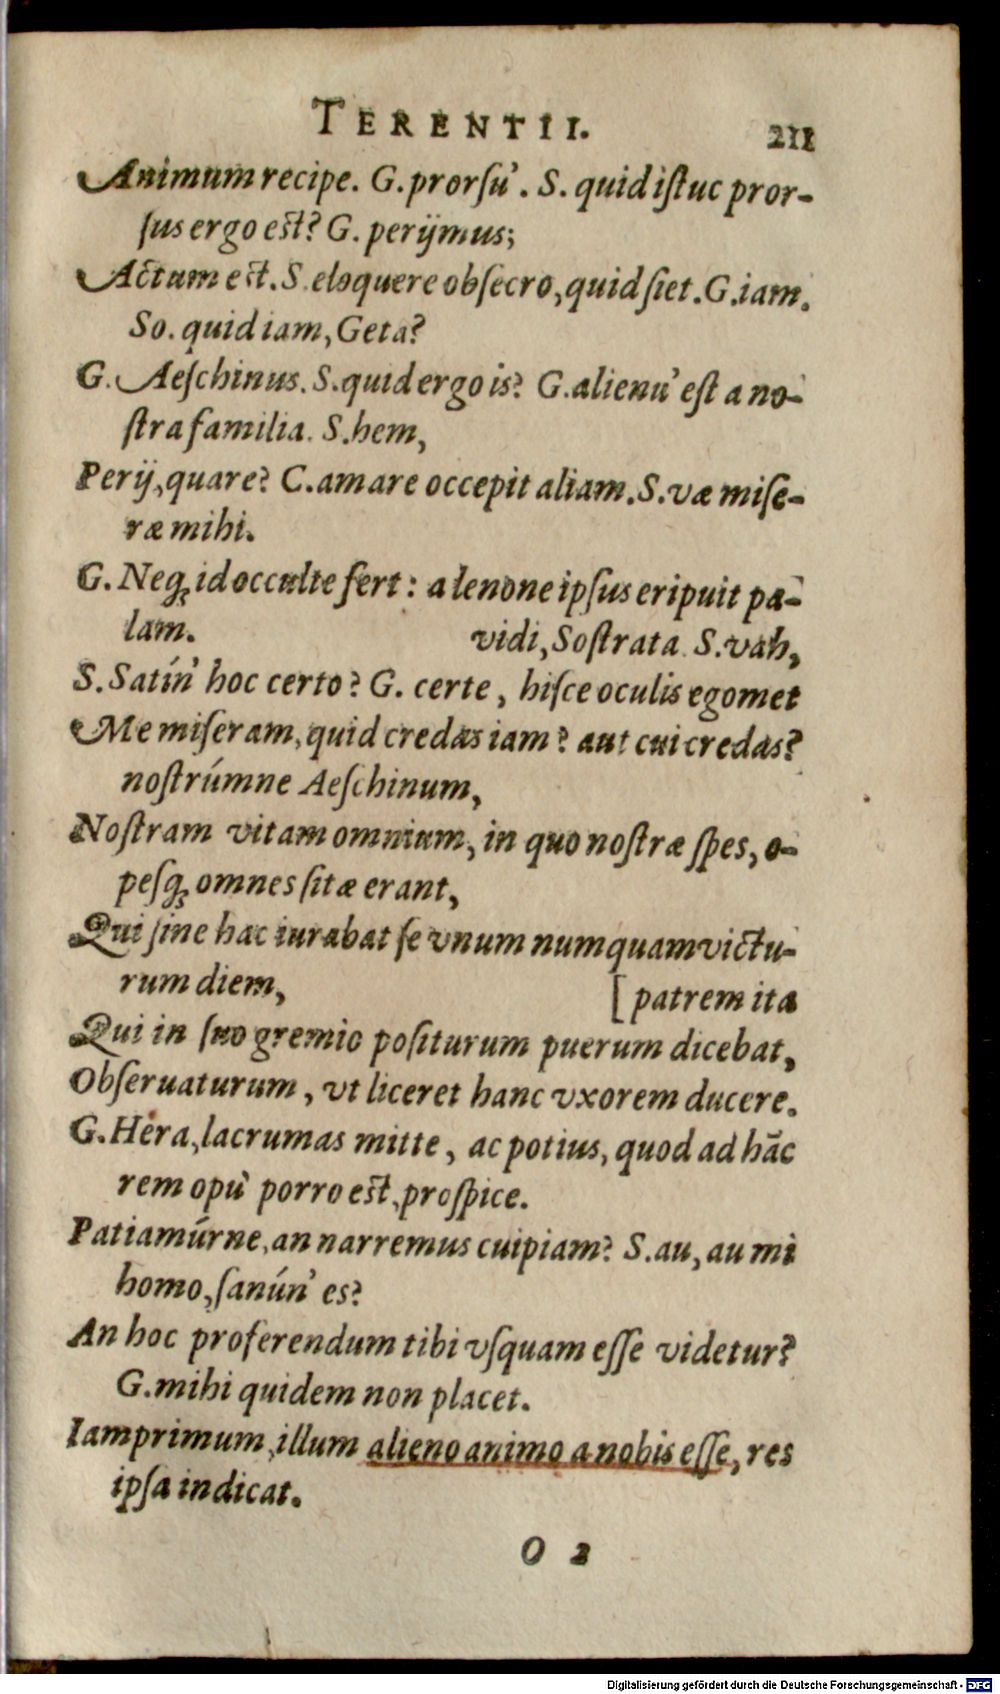 TERENTII. 211
Animum recipe. G. prorsu'. S. quid istuc pror-
sus ergo est? G. perijmus;
Actum est. S. eloquere obsecro, quid siet. G. iam.
So. quid iam, Geta?
G. Aeschinus. S. quid ergo is? G. alienu' est a no-
stra familia. S. hem,
Perij, quare? C. amare occepit aliam. S. væ mise-
ræ mihi.
G. Neq; id occulte fert: a lenone ipsus eripuit pa-
lam. vidi, Sostrata. S. vah,
S. Satín' hoc certo? G. certe, hisce oculis egomet
Me miseram, quid credas iam? aut cui credas?
nostrúmne Aeschinum,
Nostram vitam omnium, in quo nostræ spes, o-
pesq; omnes sitæ erant,
Qui sine hac iurabat se vnum numquam victu-
rum diem, [patrem ita
Qui in suo gremio positurum puerum dicebat,
Obseruaturum, vt liceret hanc vxorem ducere.
G. Hera, lacrumas mitte, ac potius, quod ad hāc
rem opu' porro est, prospice.
Patiamúrne, an narremus cuipiam? S. au, au mi
homo, sanún' es?
An hoc proferendum tibi vsquam esse videtur?
G. mihi quidem non placet.
Iam primum, illum alieno animo a nobis esse, res
ipsa indicat.
O 2
Digitalisierung gefördert durch die Deutsche Forschungsgemeinschaft - DFG